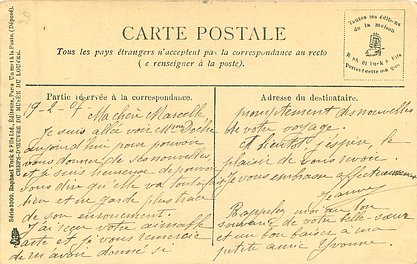 CARTE POSTALE
Tous les pays étrangers n'acceptent pas la correspondance au recto
(se renseigner à la poste).
Toutes les éditions
de la maison
Portent cette marque
Série 3500. Raphael Tuck & Fils Ltd. Éditeurs, Paris. Un metà à Poste. (Déposé).
CHEFS-D'ŒUVRE DU MUSÉE DU LOUVRE.
Partie réservée à la correspondance.
19-2-7
Ma chère Marcelle
Je suis allée voir Mme
aujourd'hui pour pouvoir
vous donner de ses nouvelles
et je suis heureuse de pouvoir
vous dire qu'elle va tout à fait
bien et ne garde plus trace
de son enrouement.
J'ai reçu votre aimable
carte et je vous remercie
de m'avoir donné si
Adresse du destinataire.
promptement des nouvelles
de votre voyage.
A bientôt j'espère, le
plaisir de vous revoir.
Je vous embrasse affectueusement
Jeanne
Rappelez moi au bon
souvenir de votre belle-sœur
et un bon baiser à ma
petite amie Yvonne.